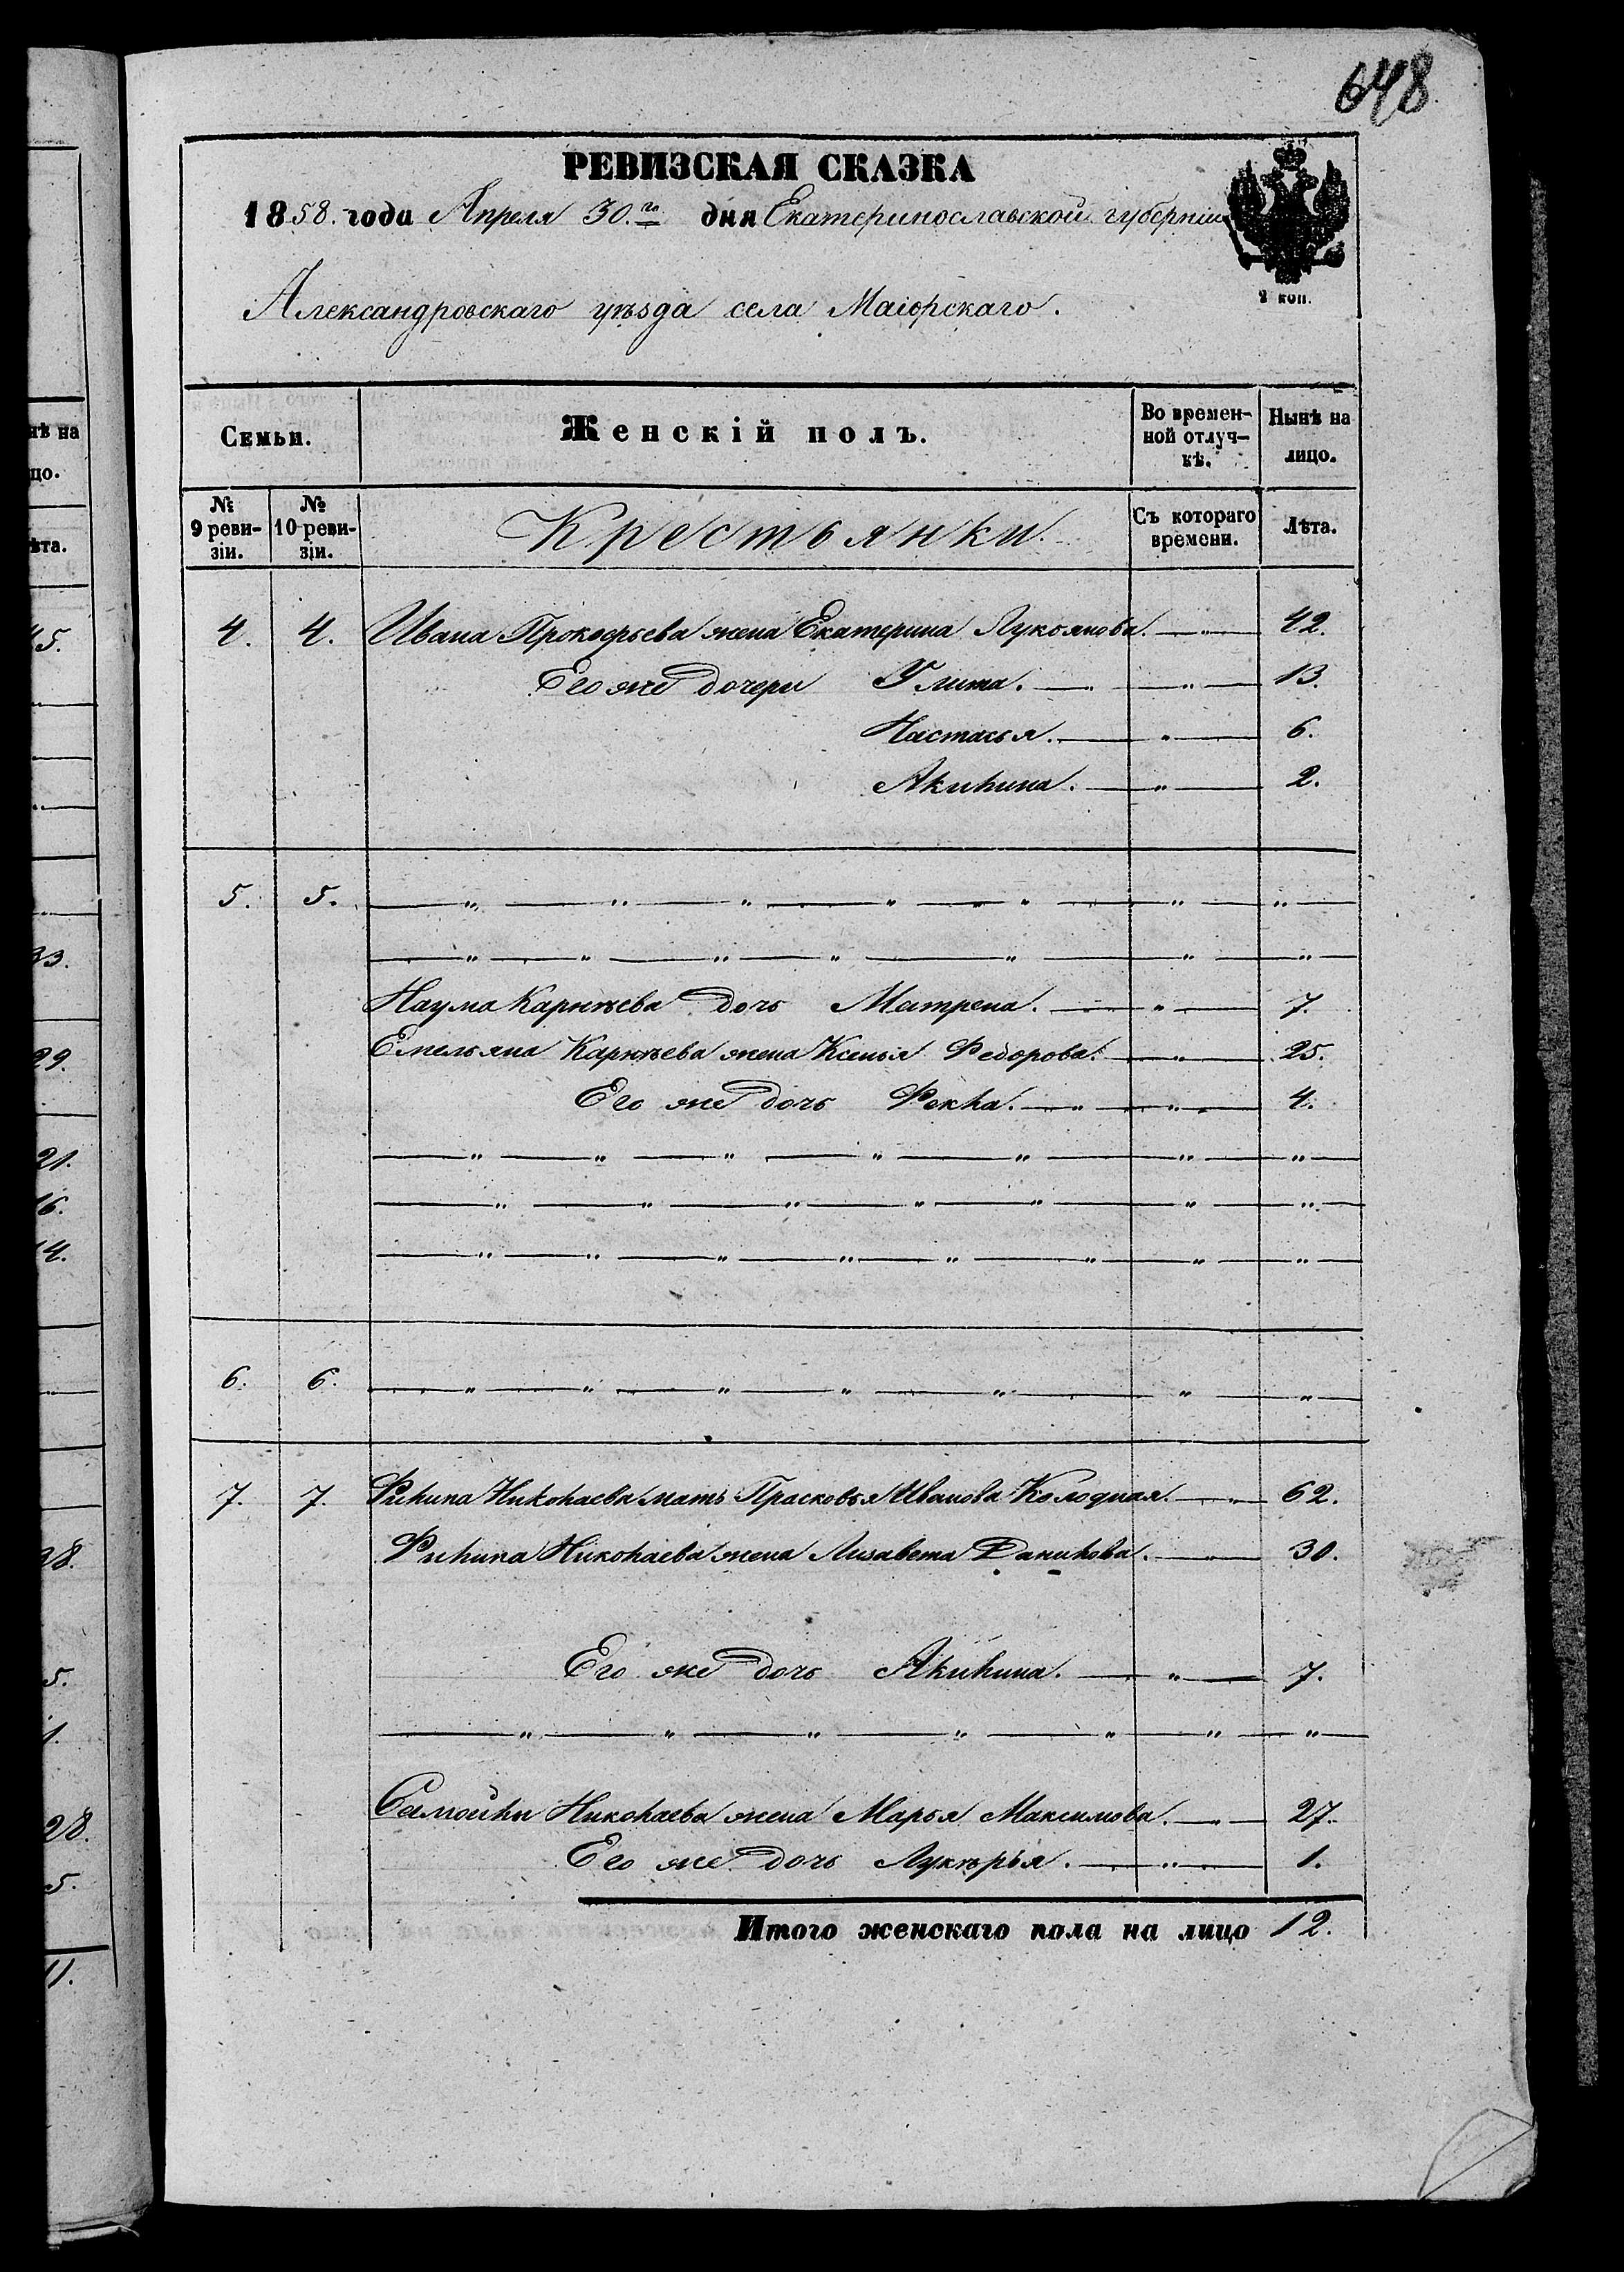 648
РЕВИЗСКАЯ СКАЗКА
1858. года Апреля 30.го дня Екатеринославской губерніи
2 коп.
Александровскаго уѣзда села Маіорскаго.
Семьи. Женскій полъ. Во временной отлучкѣ. Нынѣ на лицо.
№ 9 ревизіи. № 10 ревизіи. Крестьянки. Съ котораго времени. Лѣта.
4. 4. Ивана Прокофьева жена Екатерина Лукьянова. — „ — 42.
Его же дочери Улита. — „ — „ — 13.
Настасья. — „ — 6.
Акилина. — „ — 2.
5. 5. — „ — „ — „ — „ — „ — „ — „ —
— „ — „ — „ — „ — „ — „ — „ —
Наума Карнѣева дочь Матрена. — „ — 7.
Емельяна Карнѣева жена Ксенья Федорова. — „ — 25.
Его же дочь Фекла. — „ — „ — 4.
— „ — „ — „ — „ — „ — „ — „ —
— „ — „ — „ — „ — „ — „ — „ —
— „ — „ — „ — „ — „ — „ — „ — „ —
6. 6. — „ — „ — „ — „ — „ — „ — „
7. 7. Филипа Николаева мать Прасковья Иванова Колодная. — „ — 62.
Филипа Николаева жена Лизавета Данилова. — „ — 30.
Его же дочь Акилина. — „ — 7.
— „ — „ — „ — „ — „ — „ — „ —
Самойлы Николаева жена Марья Максимова. — „ — 27.
Его же дочь Лукѣрья. — „ — 1.
Итого женскаго пола на лицо 12.